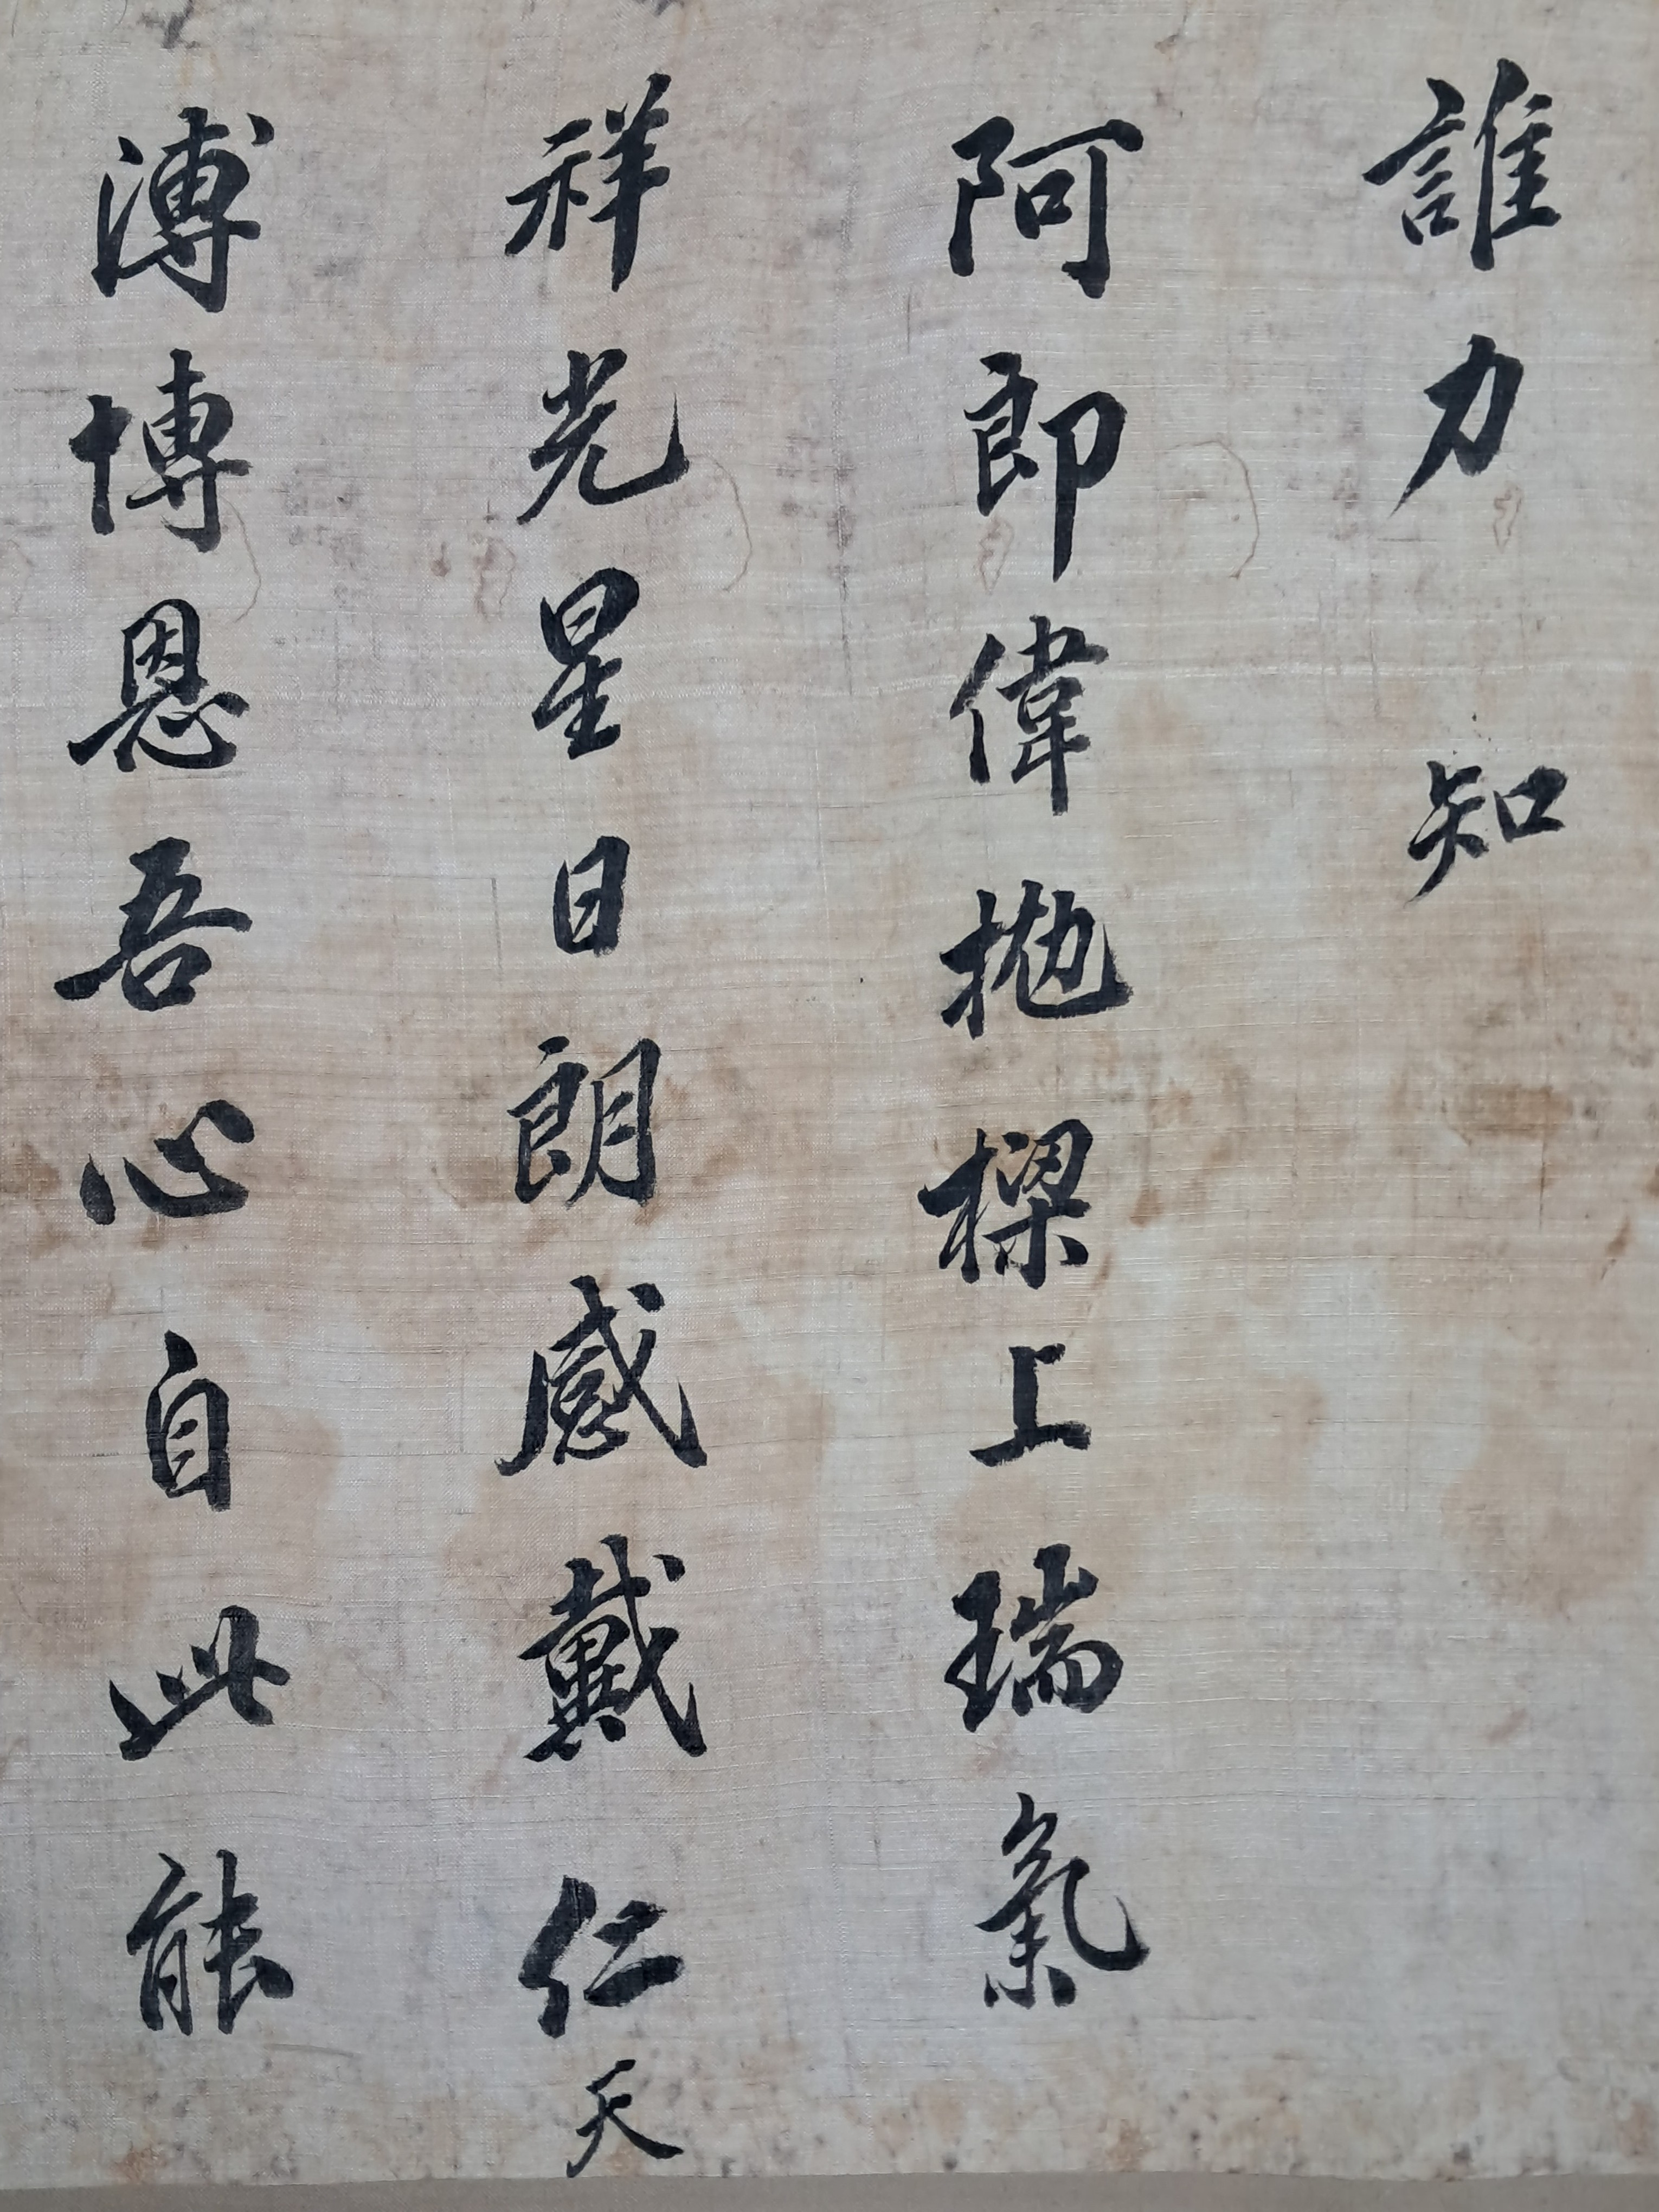 誰力知
阿郎偉拋樑上瑞氣
祥光星日朗感戴仁天
溥博恩吾心自此能